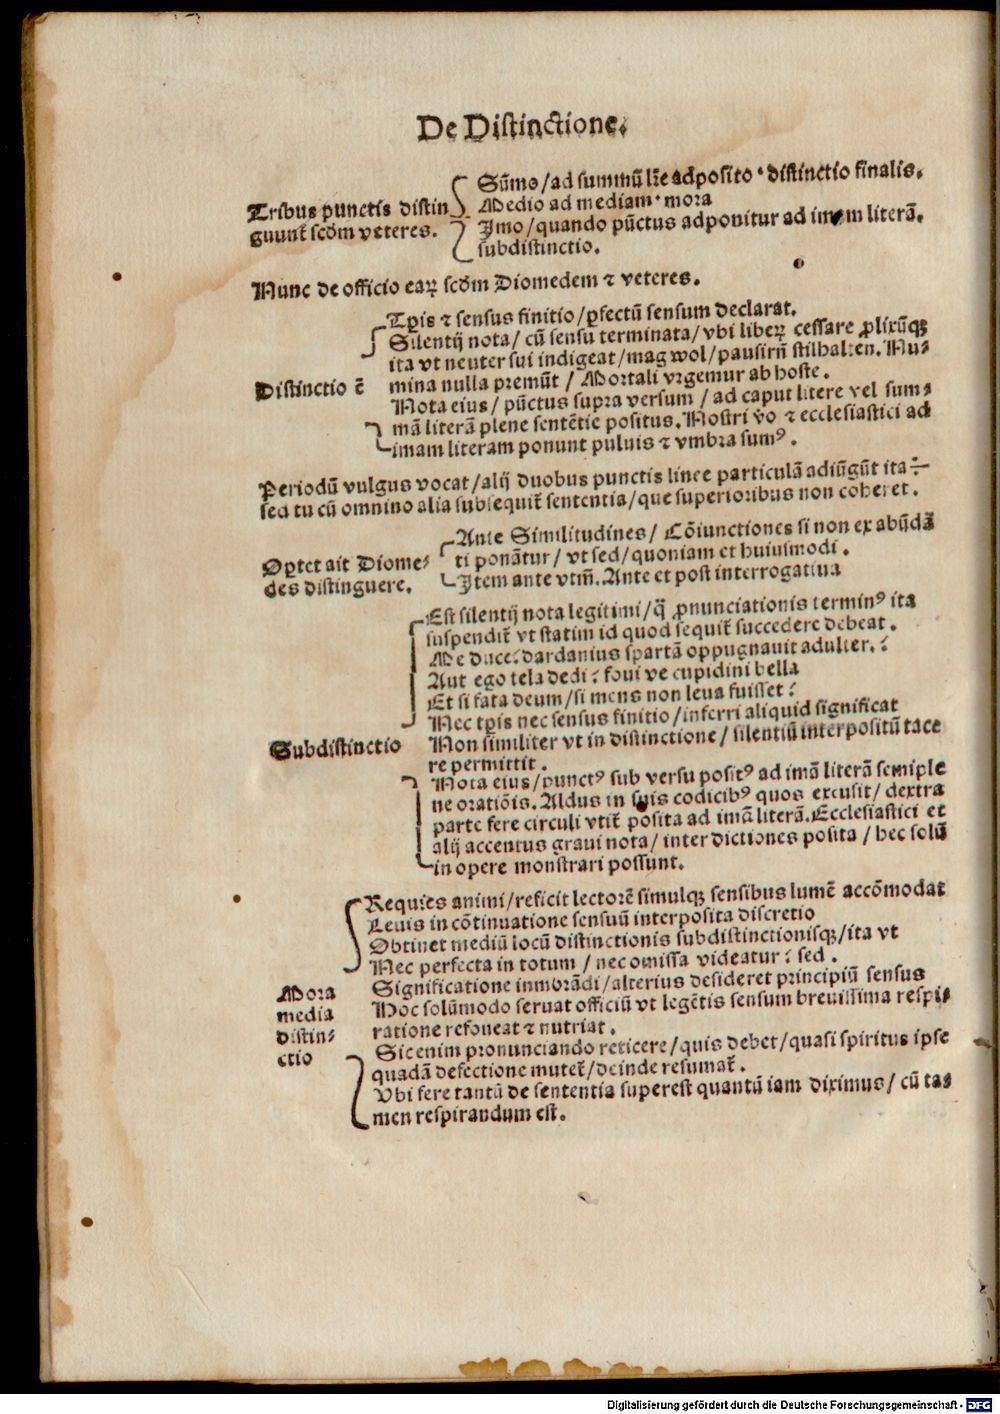 De Distinctione.
Sūmo/ad summū lr̄e adposito · distinctio finalis.
Tribus punctis distin
Medio ad mediam · mora
guunt᷑ scd̄m veteres.
Imo/quando pūctus adponitur ad imam literā.
subdistinctio.
Nunc de officio eaꝝ scd̄m Diomedem ⁊ veteres.
Tꝑis ⁊ sensus finitio/ꝑfectū sensum declarat.
Silentij nota/cū sensu terminata/vbi libeꝝ cessare ꝓlixūqꝫ
ita vt neuter sui indigeat/mag wol/pausirn̄ stilhalten. Nu-
Distinctio ē
mina nulla premūt / Mortali vrgemur ab hoste.
Nota eius/ pūctus supra versum / ad caput litere vel sum-
mā literā plene sentētie positus. Nostri v̄o ⁊ ecclesiastici ad
imam literam ponunt puluis ⁊ vmbra sumꝰ.
Periodū vulgus vocat/alij duobus punctis linee particulā adiūgūt ita ÷
sed tu cū omnino alia subsequit᷑ sententia/que superioribus non coheret.
Ante Similitudines/ Cōiunctiones si non ex abūdā
Oꝑtet ait Diome-
ti ponātur / vt sed/quoniam et huiusmodi.
des distinguere.
Item ante vtm̄. Ante et post interrogatiua
Est silentij nota legitimi/q̄ ꝓnunciationis terminꝰ ita
suspendit᷑ vt statim id quod sequit᷑ succedere debeat.
Me duce: dardanius spartā oppugnauit adulter.:
Aut ego tela dedi: foui ve cupidini bella
Et si fata deum/si mens non leua fuisset:
Nec tꝑis nec sensus finitio/inferri aliquid significat
Subdistinctio
Non similiter vt in distinctione/ silentiū interpositū tace
re permittit.
Nota eius/punctꝰ sub versu positꝰ ad imā literā semiple
ne oratiōis. Aldus in suis codicibꝰ quos excusit/ dextra
parte fere circuli vtit᷑ posita ad imā literā. Ecclesiastici et
alij accentus graui nota/ inter dictiones posita / hec solū
in opere monstrari possunt.
Requies animi/reficit lectorē simulqꝫ sensibus lumē accōmodat
Leuis in cōtinuatione sensuū interposita discretio
Obtinet mediū locū distinctionis subdistinctionisqꝫ/ita vt
Nec perfecta in totum / nec omissa videatur: sed.
Mora
Significatione inmorādi/alterius desideret principiū sensus
media
Hoc solūmodo seruat officiū vt legētis sensum breuissima respi-
distin-
ratione refoueat ⁊ nutriat.
ctio
Sic enim pronunciando reticere/quis debet/quasi spiritus ipse
quadā defectione mutet᷑/deinde resumat᷑.
Vbi fere tantū de sententia superest quantū iam diximus/ cū ta-
men respirandum est.
Digitalisierung gefördert durch die Deutsche Forschungsgemeinschaft - DFG